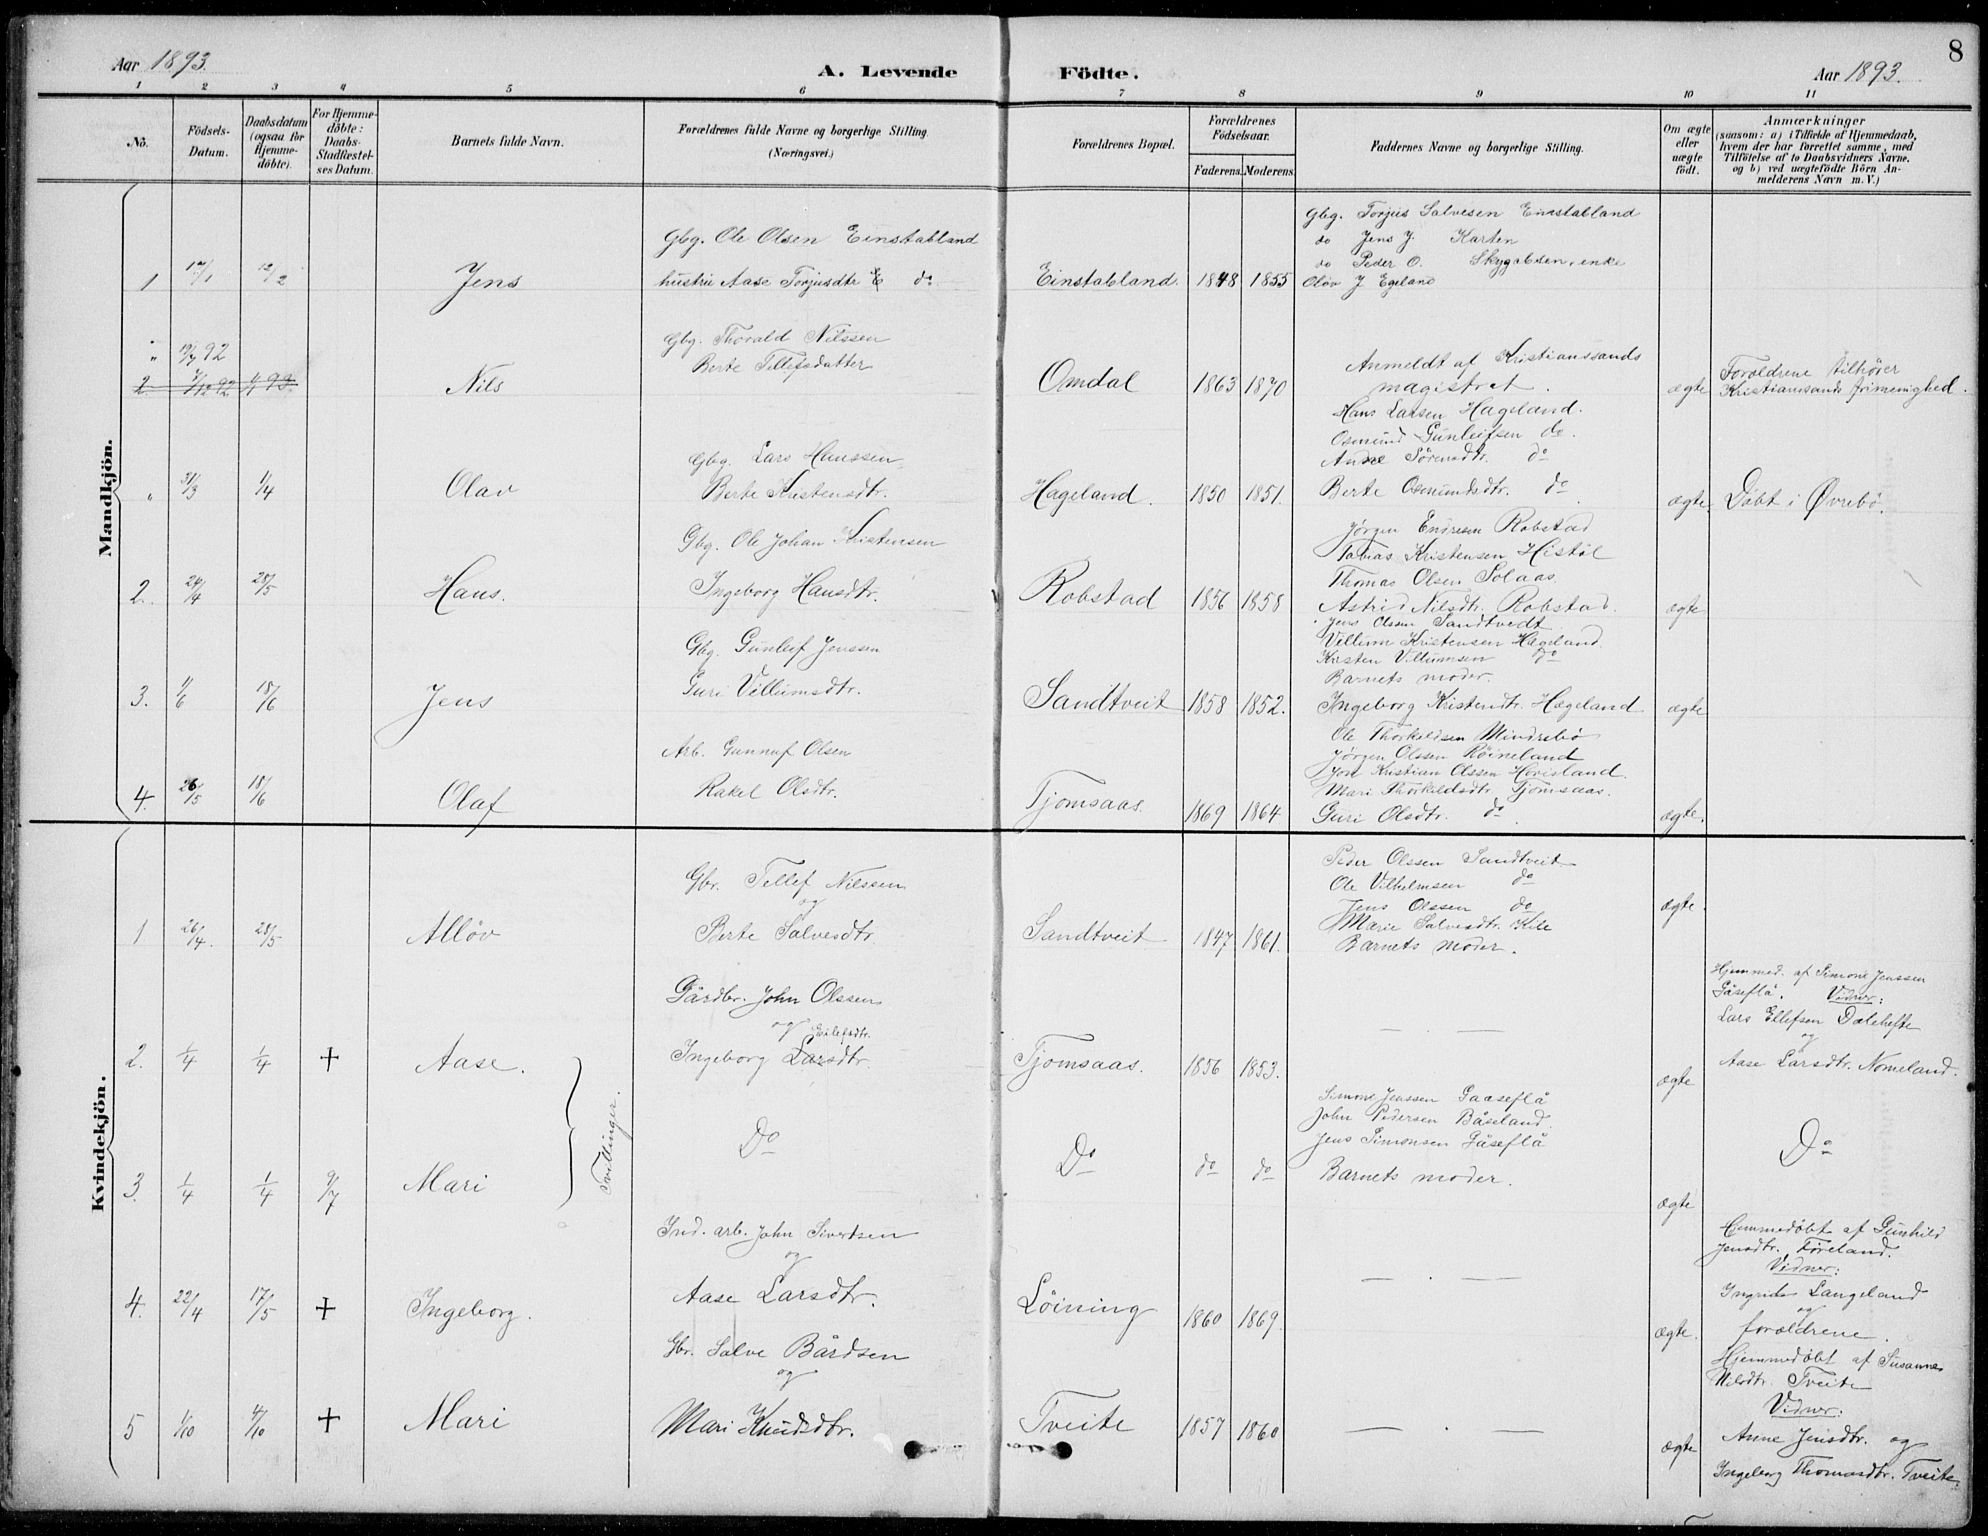 8
Aar 1893. A. Levende Födte. Aar 1893.
1 2 3 4 5 6 7 8 9 10 11
No.
Födsels-
Datum.
Daabsdatum
(ogsaa for
Hjemme-
döbte).
For Hjemme-
döbte:
Daabs-
Stadfæstel-
ses Datum.
Barnets fulde Navn.
Forældrenes fulde Navne og borgerlige Stilling
(Næringsvei.)
Forældrenes Bopæl.
Forældrenes
Födselsaar.
Faderens. Moderens.
Faddernes Navne og borgerlige Stilling.
Om ægte
eller
uægte
födt.
Anmærkninger
(saasom: a) i Tilfælde af Hjemmedaab,
hvem der har forrettet samme, med
Tilföielse af to Daabsvidners Navne.
og b) ved uægtefödte Börn An-
melderens Navn m. V.)
Mandkjön.
Gbg. Torjus Salvesen Einstabland
do Jens J. Karten
do Peder O. enke
Gbg. Ole Olsen Einstabland
1 12/2 Jens hustru Aase Torjusdtr E do Einstabland. 1848 1855 Olöv J Egeland
Gbg. Thorald Nilssen
" 92
Berte Tellefsdatter
Anmeldt af Kristianssands
magistrat.
2 Nils Omdal 1863 1870 ægte
Forældrene tilhører
Kristianssands frimenighed.
Hans Larsen Hageland.
Osmund Gunleifsen do.
Anne Sörensdtr. do
Gbg. Lars Hanssen
" 31/3 1/4 Olav Berte Kristensdtr. Hageland. 1850 1851. Berte Osmundsdtr. do ægte Döbt i Øvrebö.
Jörgen Endresen Robstad
Tobias Kristensen Histöl
Thomas Olsen Solaas
Gbg. Ole Johan Kristensen
2. 24/4 28/5 Hans. Ingeborg Hansdtr. Robstad 1856 1858 Astrid Nilsdtr. Robstad. ægte
Jens Olssen Sandtvedt
Villum Kristensen Hageland
Kristen Villumsen do
Barnets moder.
Gbg. Gunleif Jenssen
3. 1/6 18/6 Jens Guri Villumsdtr. Sandtveit 1858 1852. Ingeborg Kristendtr. Hægeland ægte
Ole Thorkildsen Mindrebö
Jörgen Olssen Röineland
Jon Kristian Olssen Hovisland.
Mari Thorkildsdtr. Tjomsaas.
Arb. Gunnuf Olsen
4. 26/5 18/6 Olaf Rakel Olsdtr. Tjomsaas. 1869 1864 Guri Olsdtr. do. ægte.
Kvindekjön.
Peder Olssen Sandtveit
Ole Vilhelmsen do
Jens Olssen do
Marie Salvesdtr. Kile
Gbr. Tellef Nilssen
og
1 26/4. 28/5 Allöv Berte Salvesdtr. Sandtveit 1847 1861. Barnets moder. ægte.
Hjemmed. af Simone Jenssen
Gåseflå. Vidner:
Lars Ellefsen Dalehefte
og
Aase Larsdtr. Nomeland.
Gårdbr. John Olssen
og
2. 1/4 1/4 + Aase. Ingeborg Larsdtr. Tjomsaas. 1856 1853. — — ægte
Tvillinger.
Simone Jenssen Gaaseflå
John Pedersen Båseland.
Jens Simonsen Gåseflå
3. 1/4 1/4 9/7 Mari Do Do do do Barnets moder. ægte Do
Hjemmedöbt af Gunhild
Jensdtr. Föreland.
Vidner:
Ingrid Langeland
og
forældrene.
Ind. arb. John Sivertsen
og
4. 22/4 17/5 + Ingeborg. Aase Larsdtr. Löining 1860 1869. — . — ægte.
Hjemmedöbt af Susanne
Nilsdtr. Tveite
Vidner:
Anne Jensdtr. og
Ingeborg Thomasdtr. Tveite.
Gbr. Salve Bårdsen
og
5 1/10 4/10 + Mari Mari Knudsdtr. Tveite 1857 1860 — . — ægte